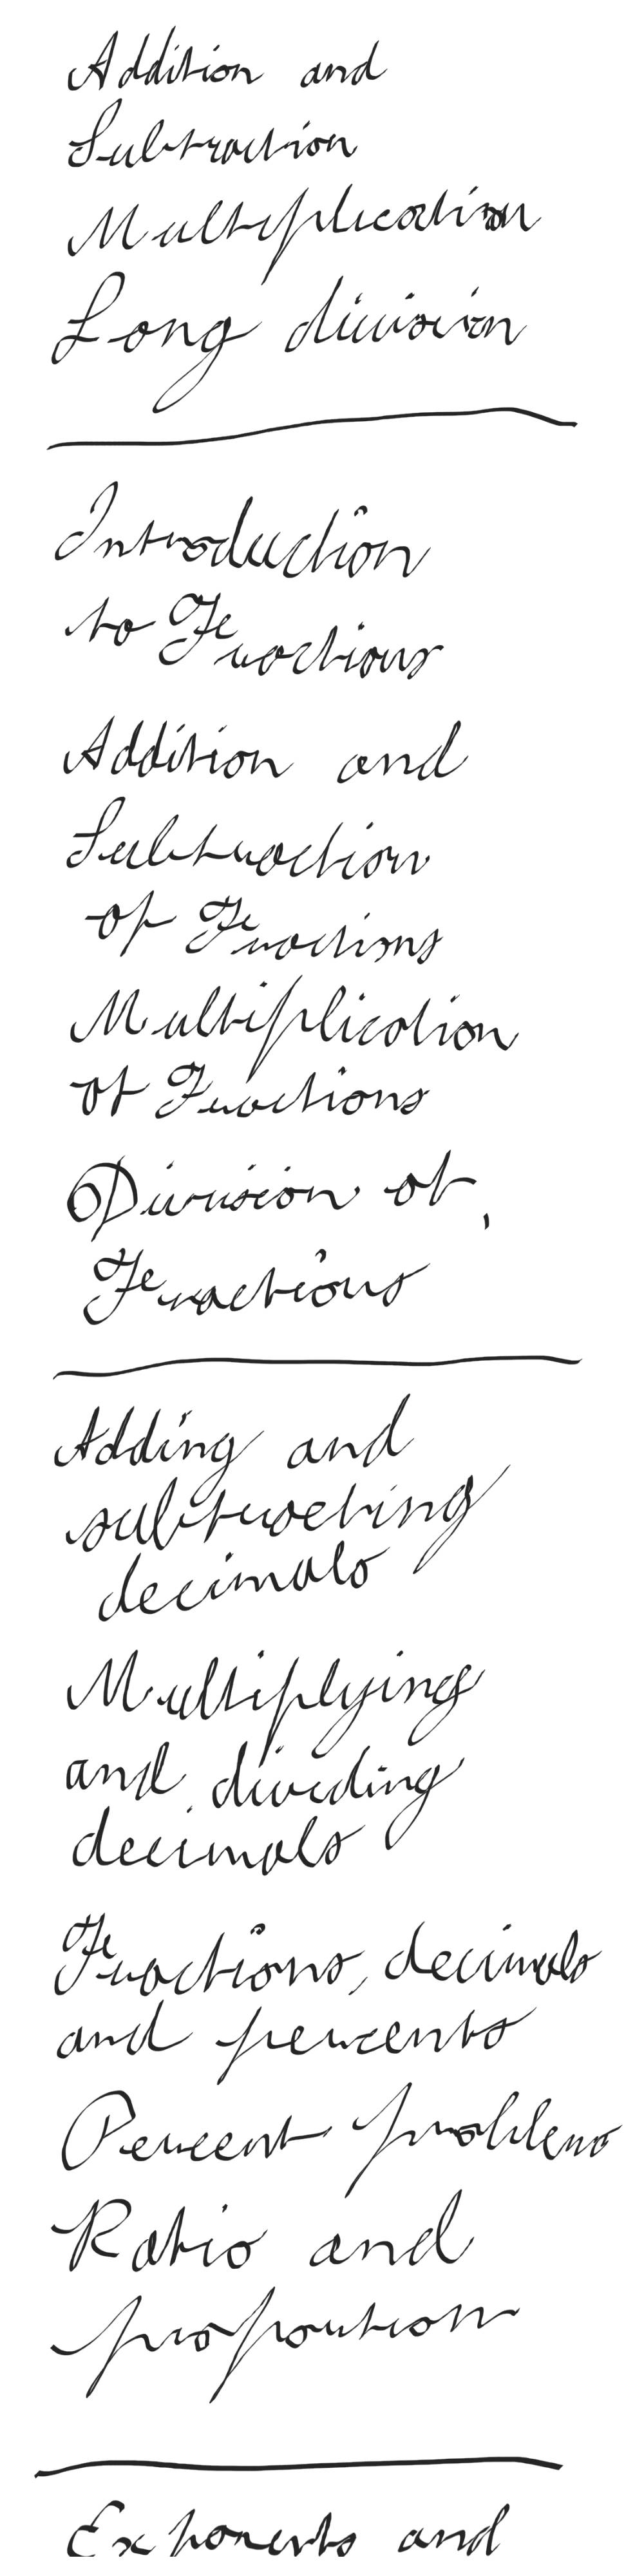 Addition and
Subtraction
Multiplication
Long division
Introduction
to Fractions
Addition and
Subtraction
of Fractions
Multiplication
of Fractions
Division of
Fractions
Adding and
subtracting
decimals
Multiplying
and dividing
decimals
Fractions, decimals
and percents
Percent problems
Ratio and
proportion
Exponents and